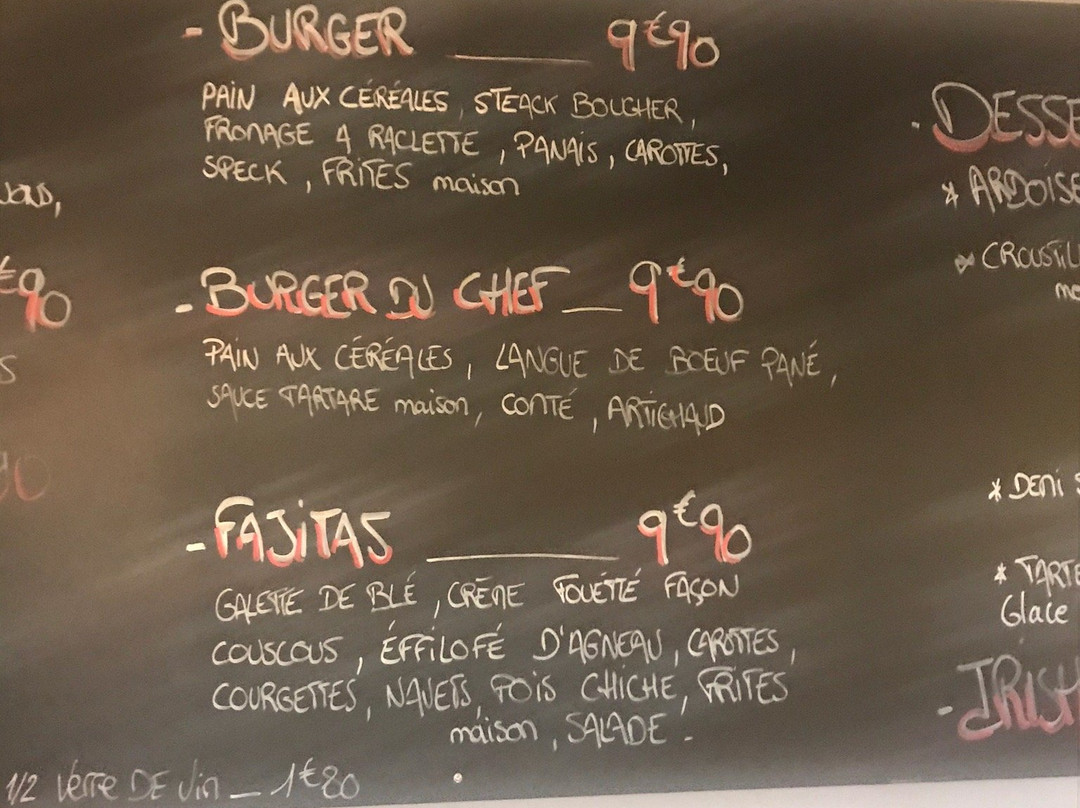 - BURGER ___ 9€90
PAIN AUX CÉRÉALES, STEACK BOUCHER,
FROMAGE A RACLETTE, PANAIS, CAROTTES,
SPECK, FRITES maison
- BURGER DU CHEF __ 9€90
PAIN AUX CÉRÉALES, LANGUE DE BOEUF PANÉ,
SAUCE TARTARE maison, COMTÉ, ARTICHAUD
- FAJITAS ___ 9€90
GALETTE DE BLÉ, CRÈME FOUETTÉ FAÇON
COUSCOUS, ÉFFILOFÉ D'AGNEAU, CAROTTES,
COURGETTES, NAVETS, POIS CHICHE, FRITES
maison, SALADE.
1/2 verre DE vin _ 1€80
€90
90
- DESSE
* ARDOISE
* CROUSTILL
* DEMI S
* TARTE
Glace
- IRISH